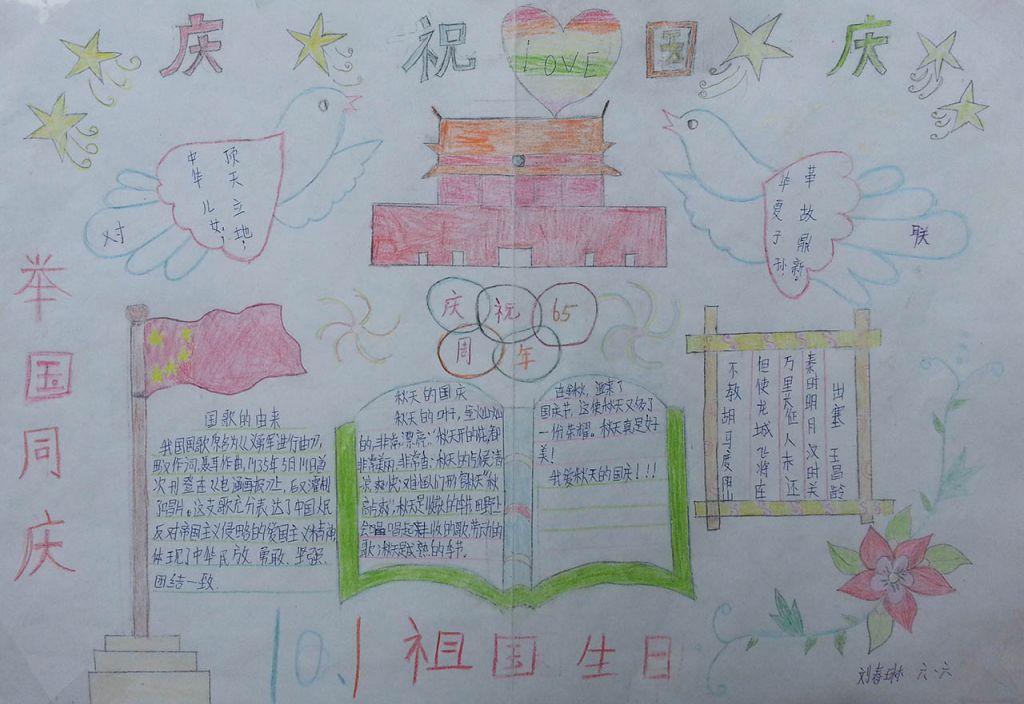 庆祝 LOVE 国庆
对
中华儿女，
顶天立地；
华夏子孙，
革故鼎新。
联
举国同庆
庆祝65
周年
国歌的由来
我国国歌原名为《义勇军进行曲》,
田汉作词,聂耳作曲,1935年5月
次刊登在《电通画报》上,后又灌制
了唱片。这支歌充分表达了中国人民
反对帝国主义侵略的爱国主义精神,
体现了中华民族 勇敢、坚强、
团结一致.
秋天的国庆
秋天的叶子,金灿灿
的,非常漂亮;秋天开的花
非常美丽,非常香;秋天的
高气爽;秋天是
会唱起丰收的歌,劳动的
歌;秋天是成熟的季节。
在金秋,迎来了
国庆节,这使秋天又多了
一份荣耀。秋天真是好
美!
我爱秋天的国庆!!!
出塞 王昌龄
秦时明月汉时关
万里长征人未还
但使龙城飞将在
不教胡马度阴山
10.1祖国生日
刘春琳 六·六